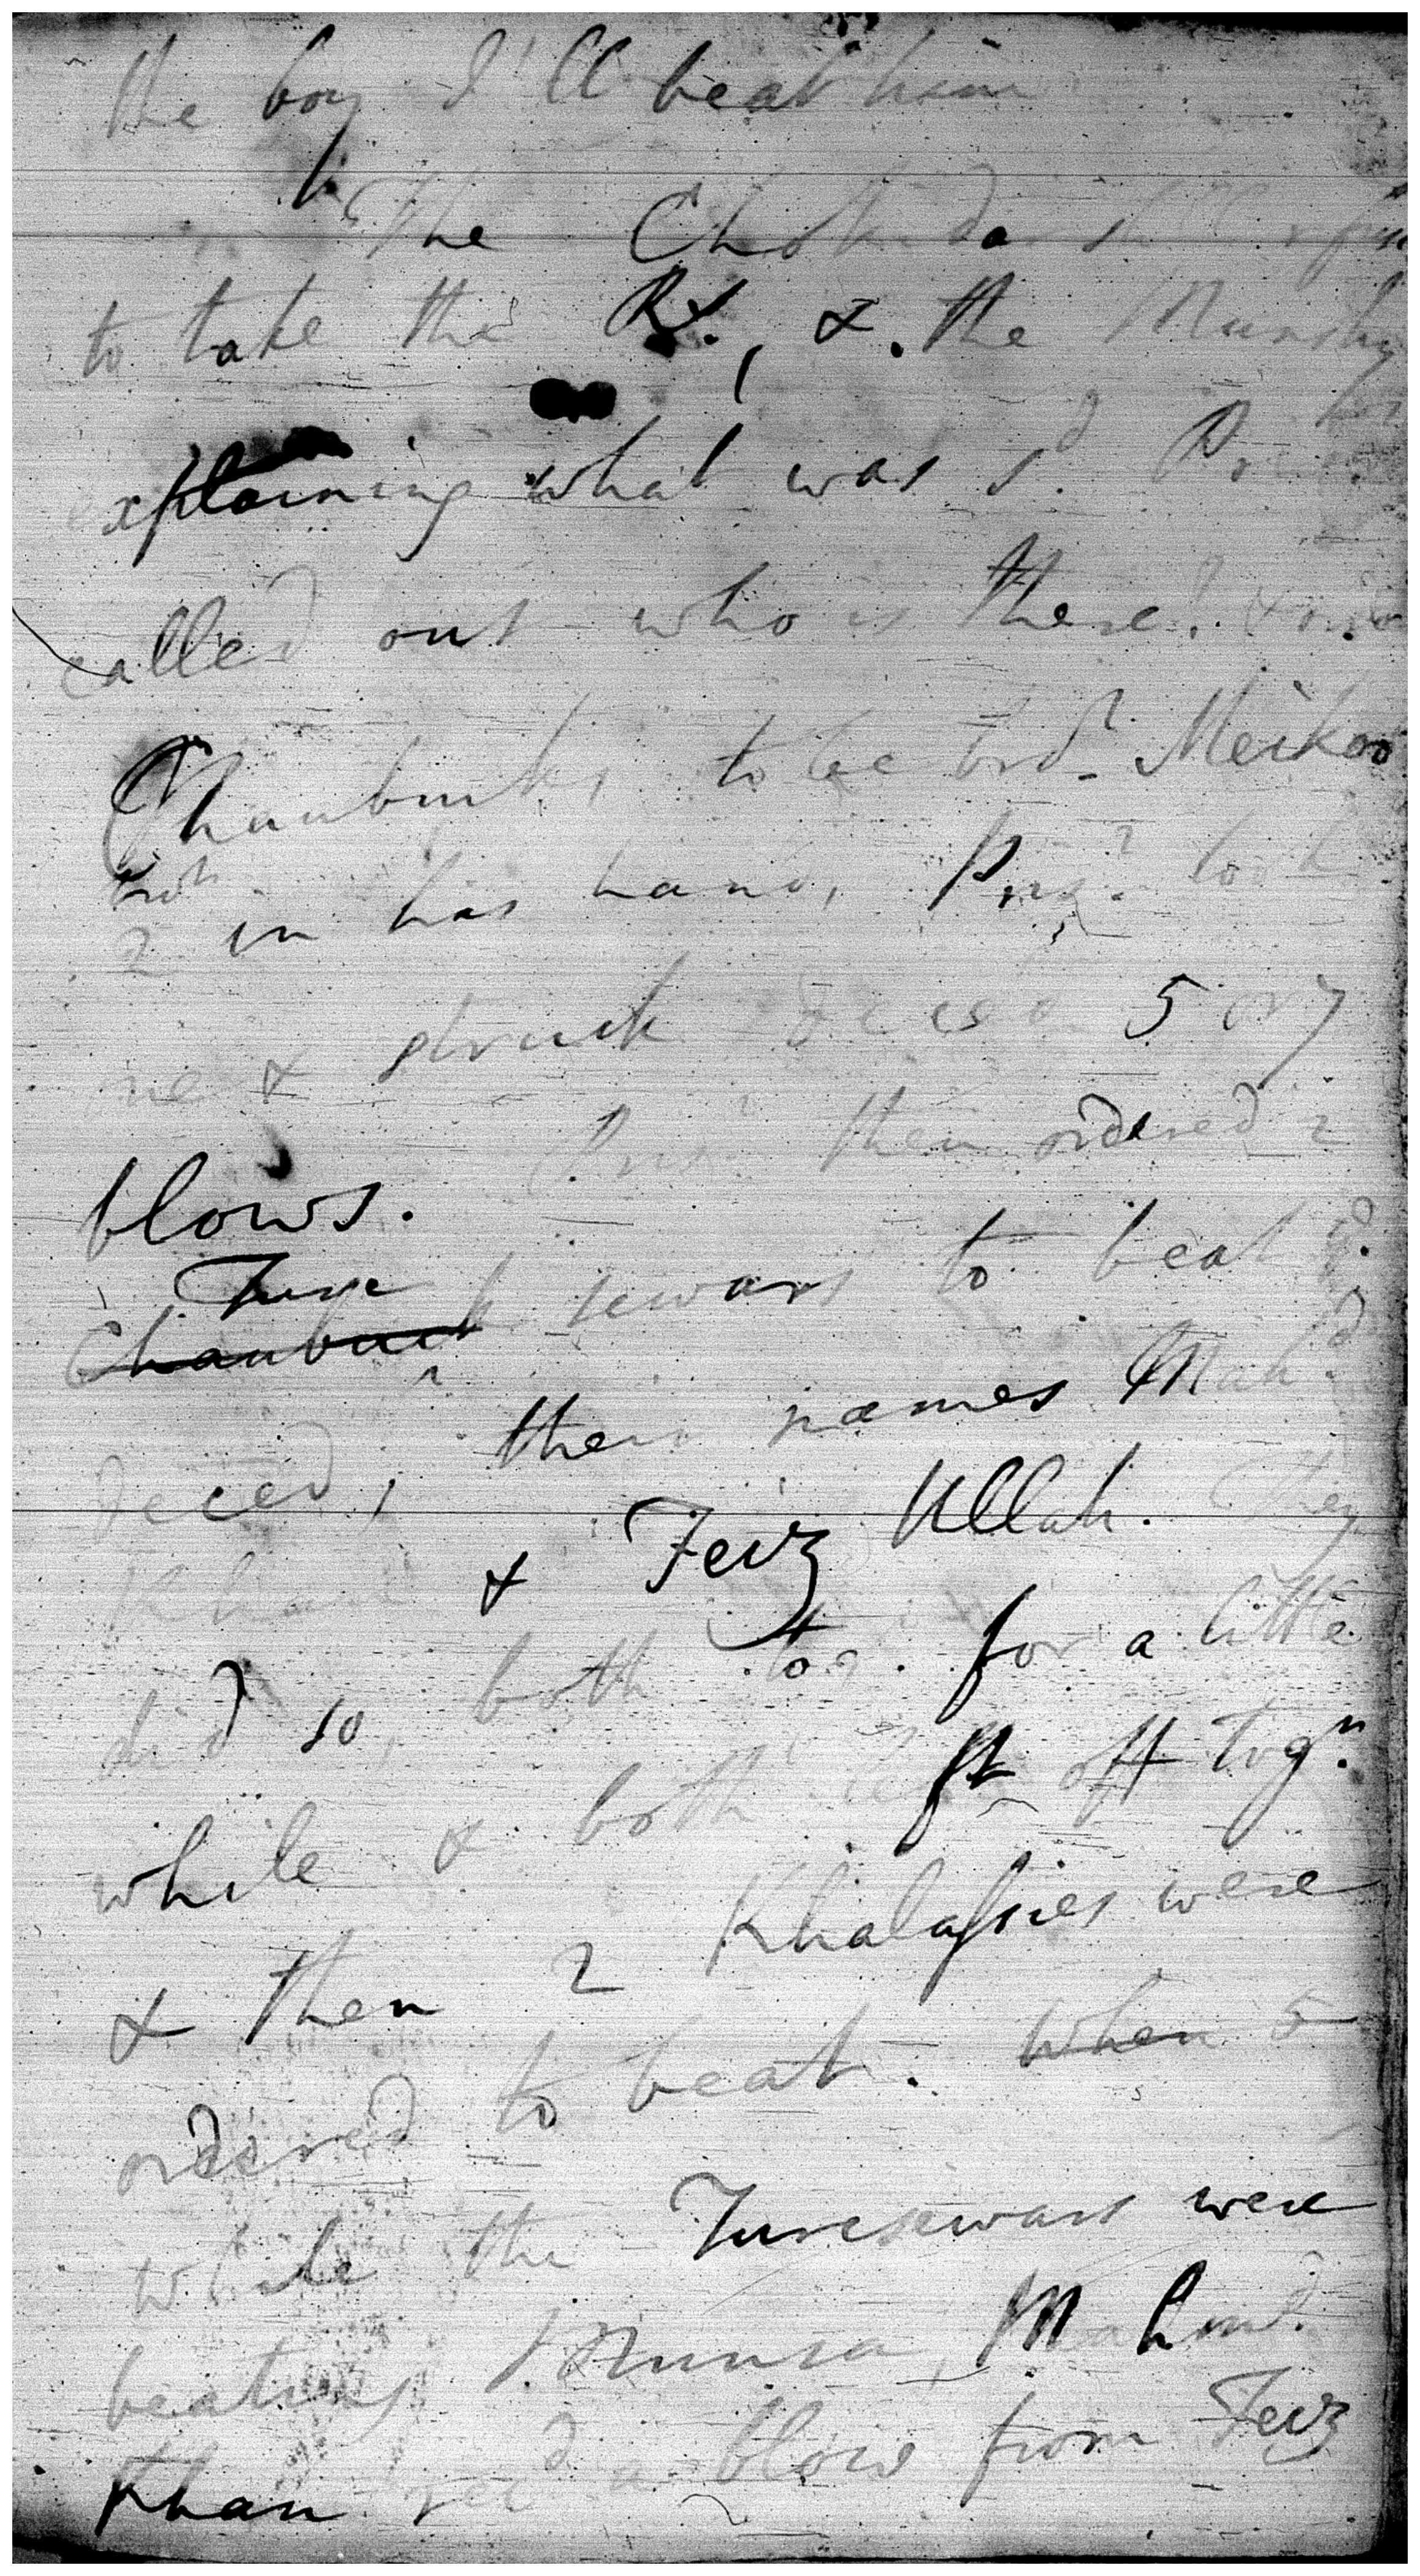 the boy I'll beat him
The Chokedar still refused
to take the Rs., & the Munshy
explaining what was sd. Prisr.
called out who is there?
Chaubuks, to be brot. Meikoo
brot 2 in his hand, Prisr. took
one & struck deced. 5 or 7
blows. Prisr. then ordered 2
Chaubuck Turk sewars to beat
deced, their names Mahd.
Khan & Feiz Ullah. They
did so, both tog. for a little
while & both left off togr.
& then 2 Khalassies were
ordered to beat. When
while the Turcsewars were
beating Munsa, Mahmd.
Khan recd a blow from Feiz